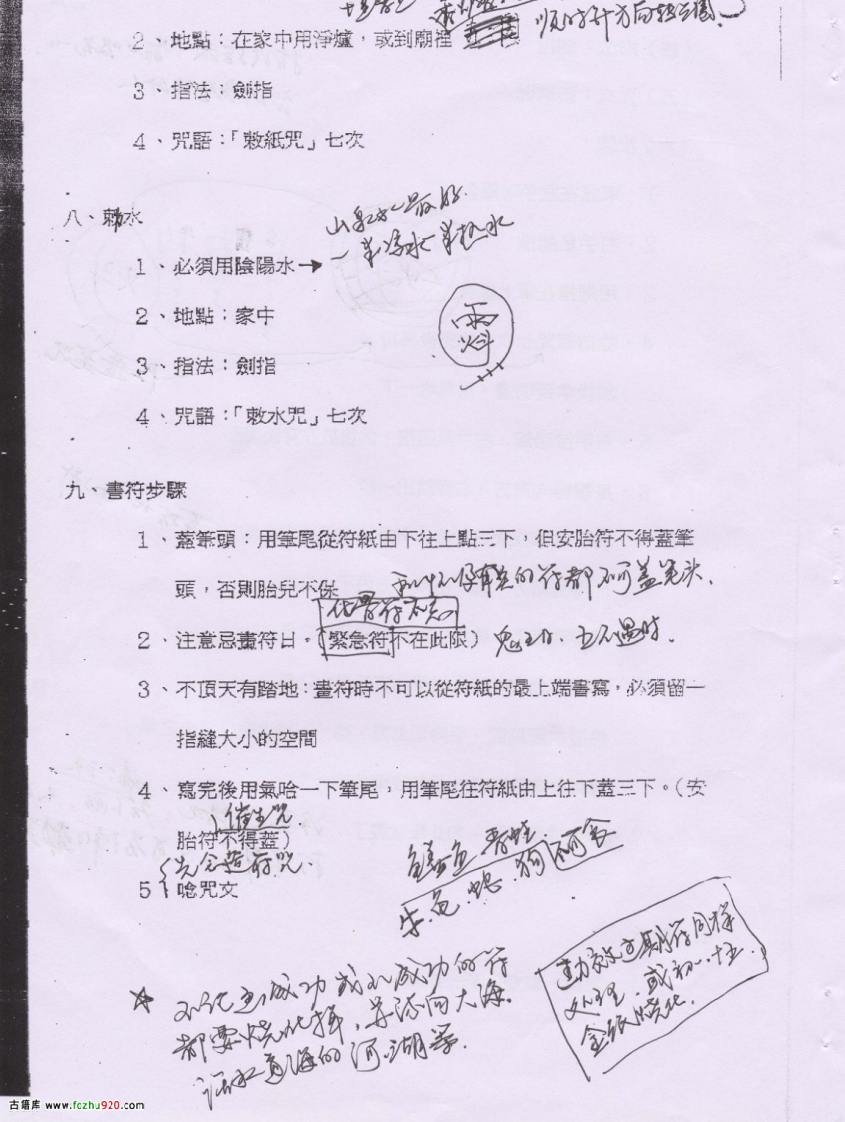 順時針方向
2、地點：在家中用淨爐，或到廟裡
3、指法：劍指
4、咒語：「敕紙咒」七次
八、勅水
山泉水最好
一半冷水 半热水
1、必須用陰陽水→
2、地點：家中
3、指法：劍指
4、咒語：「敕水咒」七次
九、書符步驟
1、蓋筆頭：用筆尾從符紙由下往上點三下，但安胎符不得蓋筆
頭，否則胎兒不保
的符都不可盖笔头.
化骨符
2、注意忌畫符日。（緊急符不在此限）
3、不頂天有踏地：畫符時不可以從符紙的最上端書寫，必須留一
指縫大小的空間
4、寫完後用氣哈一下筆尾，用筆尾往符紙由上往下蓋三下。（安
催生咒
胎符不得蓋）
先念造符咒
5、唸咒文
鱔鱼 青蛙
牛.龟.蛇.狗 不可食
☆ 不论画成功或不成功的符
都要燒化掉，并流向大海.
的河.湖
過期符同样
处理.或初一.十五
金纸燒化.
古籍库 www.fozhu920.com